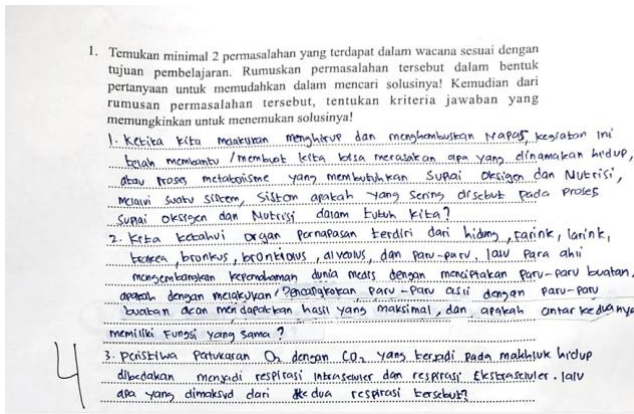 1. Temukan minimal 2 permasalahan yang terdapat dalam wacana sesuai dengan
tujuan pembelajaran. Rumuskan permasalahan tersebut dalam bentuk
pertanyaan untuk memudahkan dalam mencari solusinya! Kemudian dari
rumusan permasalahan tersebut, tentukan kriteria jawaban yang
memungkinkan untuk menemukan solusinya!
1. Ketika kita melakukan menghirup dan menghembuskan Napas, kegiatan ini
telah membantu / membuat kita bisa merasakan apa yang dinamakan hidup,
atau proses metabolisme yang membutuhkan Suplai oksigen dan Nutrisi,
melalui suatu sistem, Sistem apakah yang sering disebut pada proses
Suplai oksigen dan Nutrisi dalam tubuh kita?
2. Kita ketahui organ pernapasan terdiri dari hidung, farink, larink,
trakea, bronkus, bronkiolus, alveolus, dan paru-paru, lalu para ahli
mengembangkan kepemahaman dunia medis dengan menciptakan paru-paru buatan.
apakah dengan melakukan Pencangkokan paru-paru asli dengan paru-paru
buatan akan mendapatkan hasil yang maksimal, dan apakah antar keduanya
memiliki Fungsi yang sama?
3. Peristiwa Pertukaran O₂ dengan CO₂ yang terjadi pada makhluk hidup
dibedakan menjadi respirasi intraseluler dan respirasi Ekstraseluler. lalu
apa yang dimaksud dari kedua respirasi tersebut?
4